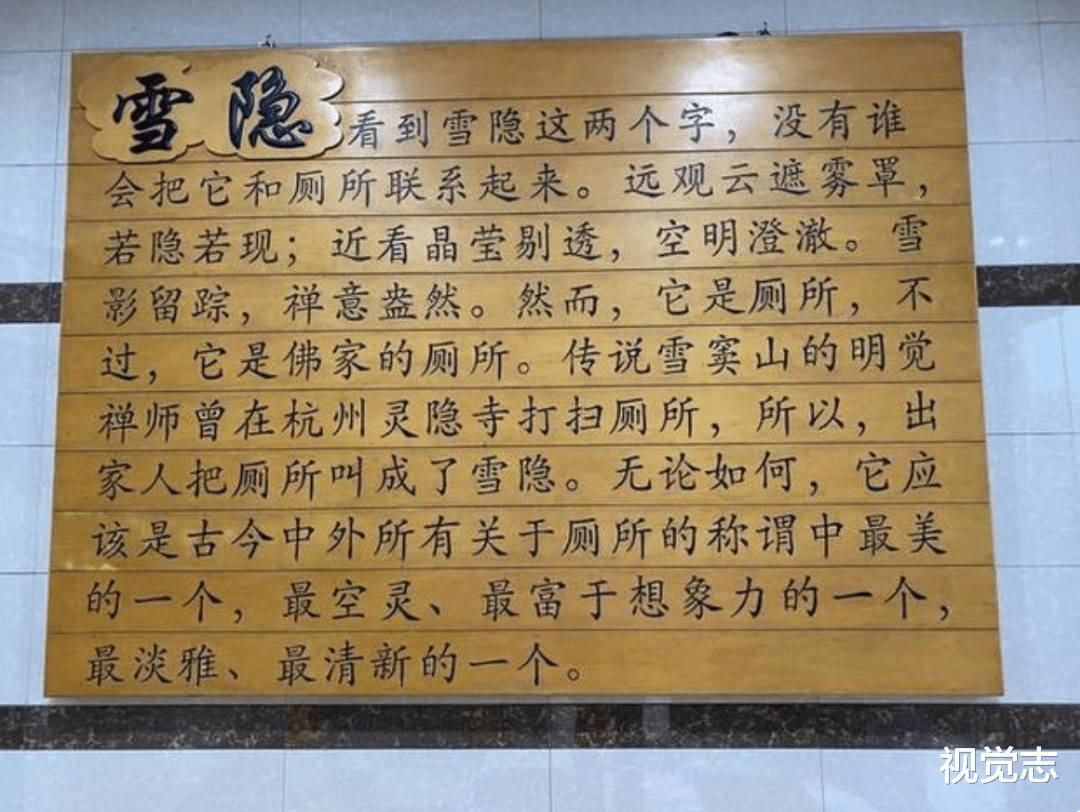 雪隐
看到雪隐这两个字，没有谁
会把它和厕所联系起来。远观云遮雾罩，
若隐若现；近看晶莹剔透，空明澄澈。雪
影留踪，禅意盎然。然而，它是厕所，不
过，它是佛家的厕所。传说雪窦山的明觉
禅师曾在杭州灵隐寺打扫厕所，所以，出
家人把厕所叫成了雪隐。无论如何，它应
该是古今中外所有关于厕所的称谓中最美
的一个，最空灵、最富于想象力的一个，
最淡雅、最清新的一个。
视觉志